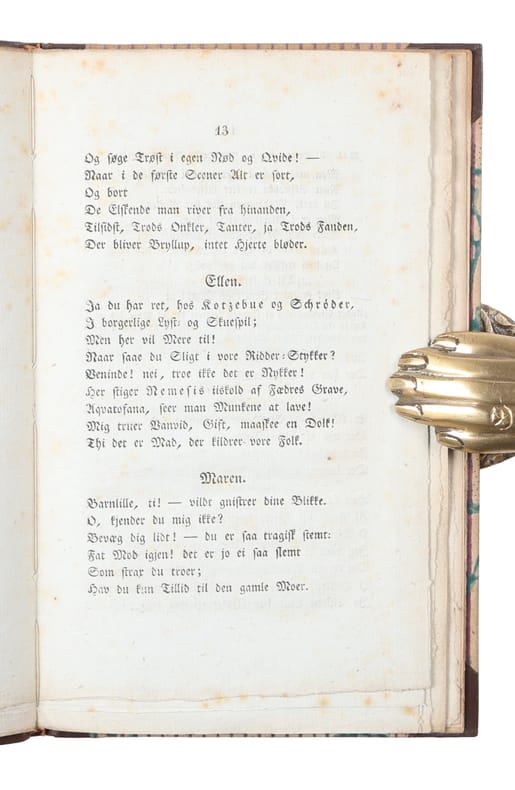 13
Og søge Trøst i egen Nød og Qvide! —
Naar i de første Scener Alt er sort,
Og bort
De Elskende man river fra hinanden,
Tilsidst, Trods Onkler, Tanter, ja Trods Fanden,
Der bliver Bryllup, intet Hjerte bløder.
Ellen.
Ja du har ret, hos Kotzebue og Schrøder,
I borgerlige Lyst- og Skuespil;
Men her vil Mere til!
Naar saae du Sligt i vore Ridder-Stykker?
Veninde! nei, troe ikke det er Nykker!
Her stiger Nemesis iiskold af Fædres Grave,
Aqvatofana, seer man Munkene at lave!
Mig truer Vanvid, Gift, maaskee en Dolk!
Thi det er Mad, der kildrer vore Folk.
Maren.
Barnlille, ti! — vildt gnistrer dine Blikke.
O, kjender du mig ikke?
Bevæg dig lidt! — du er saa tragisk stemt:
Fat Mod igjen! det er jo ei saa slemt
Som strax du troer;
Hav du kun Tillid til den gamle Moer.